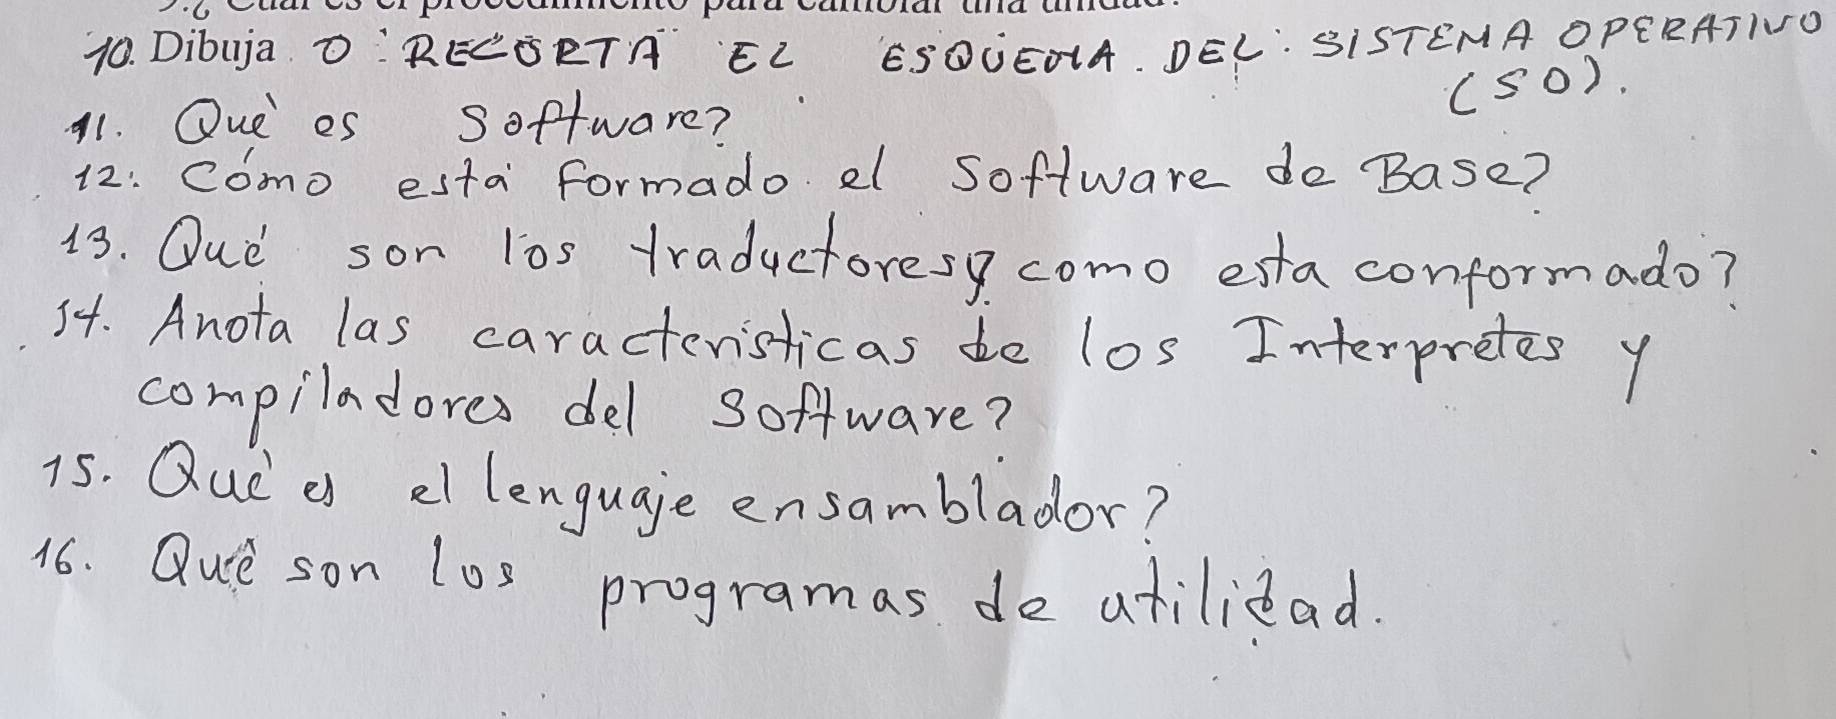 9.¿ Cuál es el procedimiento para cambiar una unidad.
10. Dibuja O RECORTA EL ESQUEMA. DEL: SISTEMA OPERATIVO
(SO).
11. Què es Software?
12. Cómo està formado el Software de Base?
13. Què son los traductores y como esta conformado?
14. Anota las caracteristicas de los Interpretes y
compiladores del Software?
15. Què es el lenguaje ensamblador?
16. Què son los programas de utilidad.